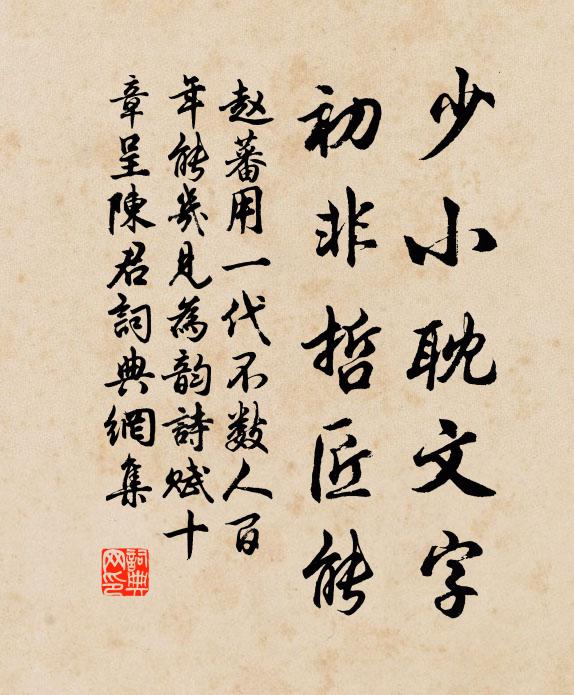 少小耽文字
初非哲匠能
赵蕃用一代不数人百
年能几见為韵詩赋十
章呈陳君詞典網集
詞典网印